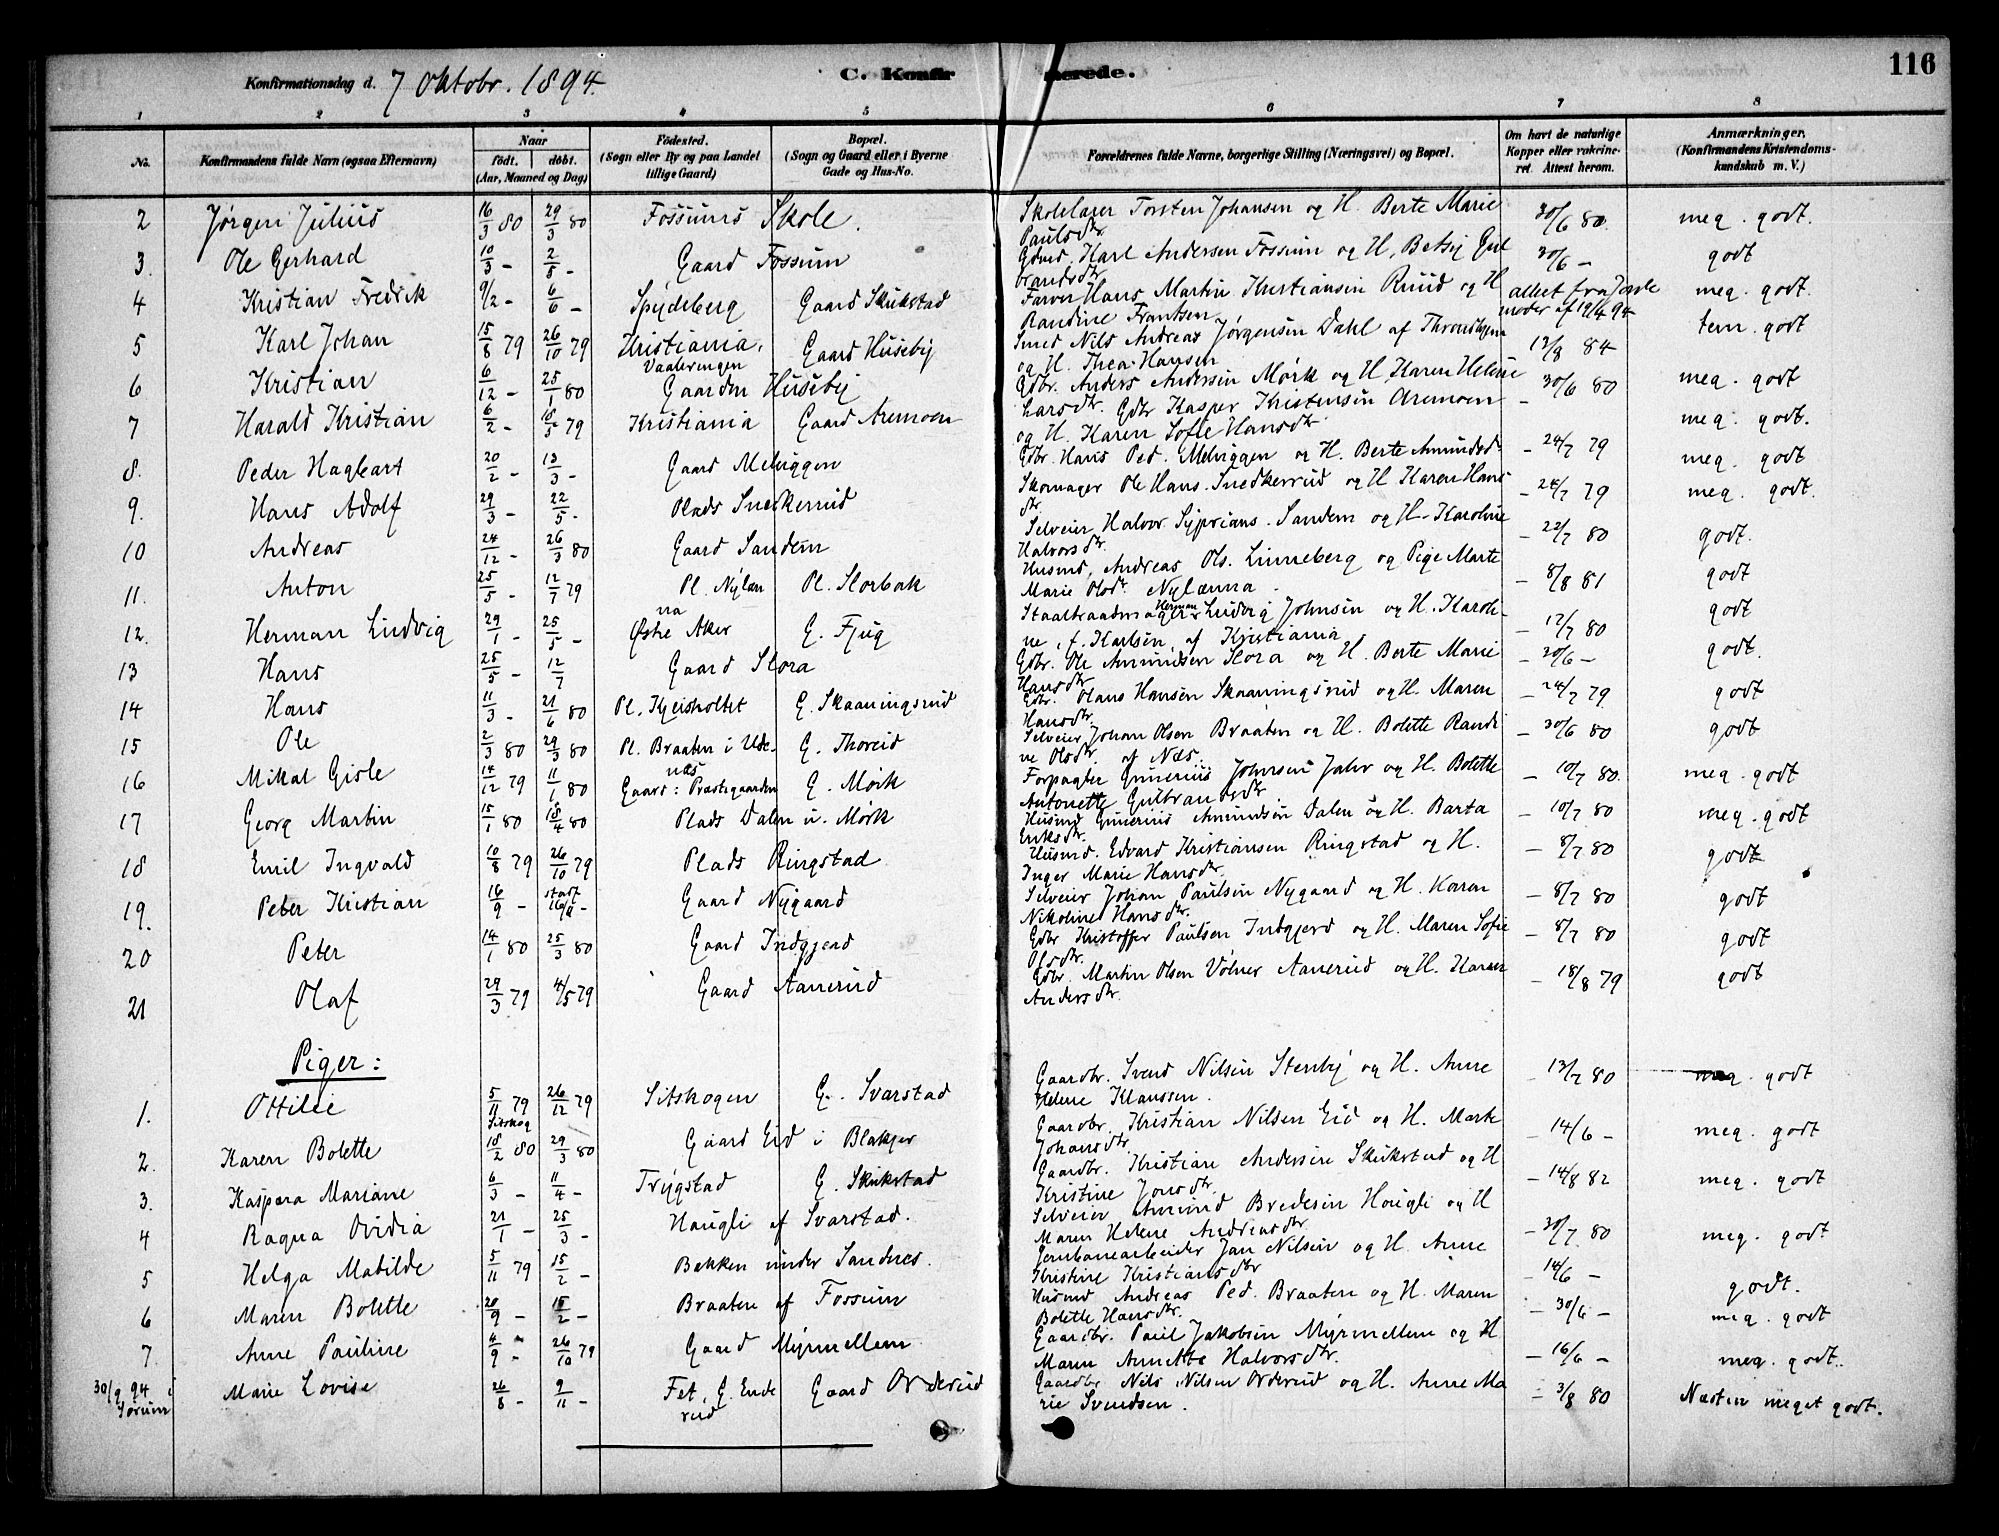 116
Konfirmationsdag d. 7 Oktobr. 1894.
C. Konfirmerede.
1 2 3 4 5 6 7 8
No. Konfirmandens fulde Navn (ogsaa Efternavn) Naar født. døbt. (Aar, Maaned og Dag) Fødested. (Sogn eller By og paa Landet tillige Gaard) Bopæl. (Sogn og Gaard eller i Byerne Gade og Hus-No. Forældrenes fulde Navne, borgerlige Stilling (Næringsvei) og Bopæl. Om havt de naturlige Kopper eller vakcineret. Attest herom. Anmærkninger. (Konfirmandens Kristendomskundskab m. V.)
2 Jørgen Julius 16/3 80 29/3 80 Fossums Skole. Skolelærer Torsten Johansen og H. Berte Marie Paulsdtr. 30/6 80. meg. godt.
3. Ole Gerhard 10/3 - 2/5 - Gaard Fossum Gdmd. Karl Andersen Fossum og H. Betsy Gulbrandsdtr 30/6 - godt
4 Kristian Fredrik 9/2 - 6/6 - Spydeberg Gaard Skukstad Farver Hans Martin Kristiansen Ruud og H Randine Frantsen attest fra moder af 19/4 94 meg. godt.
5 Karl Johan 15/8 79 26/10 79 Kristiania, Vaalerengen Gaard Huseby Smed Nils Andreas Jørgensen Dahl af Throndhjem og H. Thea Hansen 12/8 84 tem. godt
6 Kristian 6/12 - 25/1 80 Gaarden Huseby Gdbr. Anders Andersen Mørk og H. Karen Helene Larsdtr. 30/6 80 meg. godt
7 Harald Kristian 6/2 - 18/5 79 Kristiania Gaard Aremoen Gdbr Kasper Kristensen Aremoen og H. Karen Sofie Hansdtr - meg. godt.
8. Peder Hagbart 20/2 - 13/3 - Gaard Melviggen Gdbr. Hans Ped. Melviggen og H. Berte Amundsd. - 24/7 79 meg. godt
9. Hans Adolf 29/3 - 22/5 - Plads Snekkerud Skomager Ole Hans. Snedkerrud og H Karen Hansdtr. - 24/7 79 meg. godt.
10 Andreas 24/12 - 26/3 80 Gaard Sandem Selveier Halvor Syprians. Sandem og H. Karoline Halvorsdtr. - 22/7 80 godt.
11. Anton 25/5 - 12/7 79 Pl. Nylænna Pl. Slorbak Husmd. Andreas Ols. Linneberg og Pige Marte Marie Olsdtr Nylænna. - 8/8 81 godt
12. Herman Ludvig 29/1 - 25/5 - Østre Aker G. Fjug Staaltraadmager Herman Ludvig Johnsen og H. Karoline, f. Karlsen, af Kristiania - 17/7 80 godt
13 Hans 25/5 - 12/7 Gaard Slora Gdbr. Ole Amundsen Slora og H. Berte Marie Hansdtr - 20/6 - godt.
14 Hans 11/3 - 21/6 80 Pl. Kjeisholtet G. Skaaningsrud Gdbr. Olaus Hansen Skaaningsrud og H. Maren Hansdtr. - 24/7 79 godt
15 Ole 2/3 80 29/3 80 Pl. Braaten i Udenæs G. Thoreid Selveier Johan Olsen Braaten og H. Bolette Randine Olsdtr. af Næs. - 30/6 80 godt
16 Mikal Gisle 14/12 79 11/1 80 Gaard: Præstegaarden G. Mørk Forpagter Gunerius Johnsen Jahr og H. Bolette Antonette Gulbrandsdtr - 10/7 80. meg. godt
17 Georg Martin 15/1 80 18/4 80 Plads Dalen u. Mørk Husmd Gunerius Amundsen Dalen og H. Barta Eriksdtr. - 10/7 80 meg. godt
18 Emil Ingvald 10/8 79 26/10 79 Plads Ringstad Husmd. Edvard Kristiansen Ringstad og H. Inger Marie Hansdtr. - 8/7 80 godt
19. Peter Kristian 16/9 - stadf 16/9 - Gaard Nygaard Selveier Johan Paulsen Nygaard og H. Karen Nikoline Hansdtr. - 8/7 80 godt
20 Peter 14/1 80 25/3 80 Gaard Indgjerd Gdbr Kristoffer Paulsen Indgjerd og H. Maren Sofie Olsdtr. - 8/7 80 godt
21 Olaf 29/3 79 4/5 79 Gaard Aanerud Gdbr. Martin Olsen Volner Aanerud og H. Karen Andersdtr. - 18/8 79 godt
Piger:
1. Ottilie 5/11 79 26/12 79 Sitskogen G. Svarstad Gaardbr. Svend Nilsen Stenby og H. Anne Helene Klaussen. - 13/7 80 meg. godt
2. Karen Bolette Sitskog 18/2 80 29/3 80 Gaard Eid i Blakjer Gaardbr. Kristian Nilsen Eid og H. Mark Johansdtr. - 14/6 - meg. godt
3. Kaspara Mariane 6/3 - 11/4 - Trygstad G. Skukstad Gaardbr. Kristian Andersen Skukstad og H Kristine Jonsdtr. - 14/8 82 meg. godt
4 Ragna Ovidia 21/1 - 25/3 - Haugli af Svarstad. Selveier Amund Bredesen Haugli og H Maren Helene Andreasdtr - 30/7 80 meg. godt
5 Helga Matilde 5/11 79 15/2 - Bakken under Sandnes. Jernbanearbeider Jan Nilsen og H. Anne Kristine Kristiansdtr - 14/6 - godt.
6 Maren Bolette 20/9 - 15/2 - Braaten af Fossum Husmd Andreas Ped. Braaten og H. Maren Bolette Hansdtr. - 30/6 - meg. godt
7. Anne Pauline 4/9 - 26/10 79 Gaard Myrmellem Gaardbr. Paul Jakobsen Myrmellem og H Maren Annette Halvorsdtr. - 16/6 - meg. godt.
30/9 94 i Sørum Marie Lovise 26/8 - 9/11 - Fet, G. Enderud Gaard Orderud Gaardbr Nils Nilsen Orderud og H. Anne Marie Svendsen. - 3/8 80 Næsten meget godt.